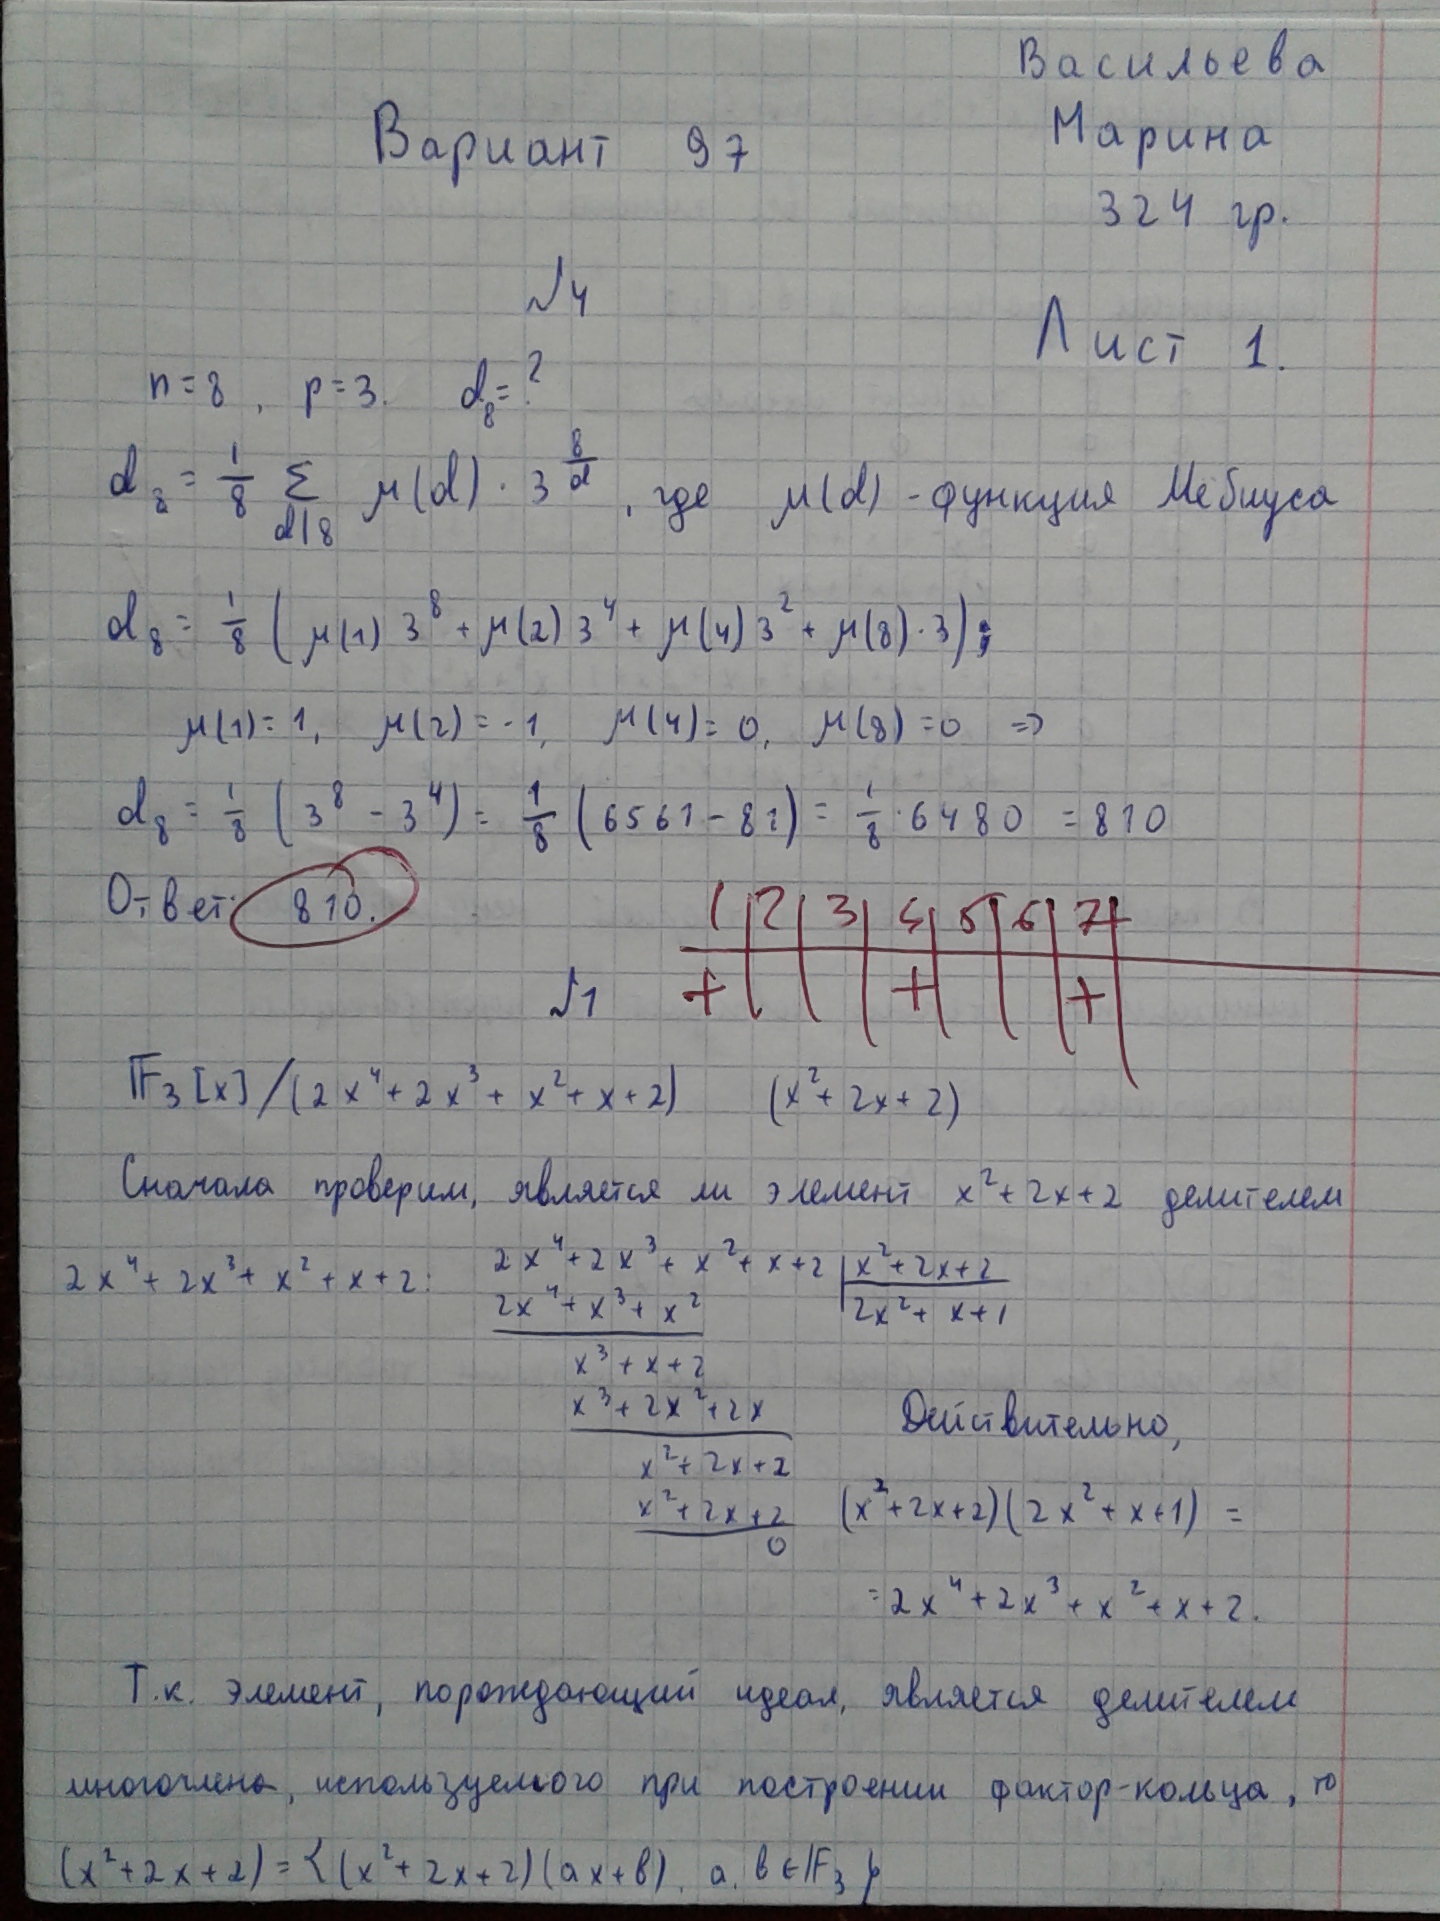 Васильева
Марина
324 гр.
Вариант 97
№4
Лист 1.
n=8, p=3. d₈=?
d₈ = 1/8 Σ_{d|8} μ(d)·3^{8/d}, где μ(d) - функция Мебиуса
d₈ = 1/8 (μ(1) 3⁸ + μ(2) 3⁴ + μ(4) 3² + μ(8)·3);
μ(1)=1, μ(2)=-1, μ(4)=0, μ(8)=0 =>
d₈ = 1/8 (3⁸ - 3⁴) = 1/8 (6561 - 81) = 1/8 · 6480 = 810
Ответ: 810.
1 | 2 | 3 | 4 | 5 | 6 | 7
+ | | | + | | | +
№1
𝔽₃[x]/(2x⁴+2x³+x²+x+2) (x²+2x+2)
Сначала проверим, является ли элемент x²+2x+2 делителем
2x⁴+2x³+x²+x+2:
2x⁴+2x³+x²+x+2 | x²+2x+2
2x⁴+x³+x² | 2x²+x+1
x³+x+2
x³+2x²+2x
x²+2x+2
x²+2x+2
0
Действительно,
(x²+2x+2)(2x²+x+1) =
=2x⁴+2x³+x²+x+2.
Т.к. элемент, порождающий идеал, является делителем
многочлена, используемого при построении фактор-кольца, то
(x²+2x+2)={(x²+2x+2)(ax+b), a, b∈𝔽₃}